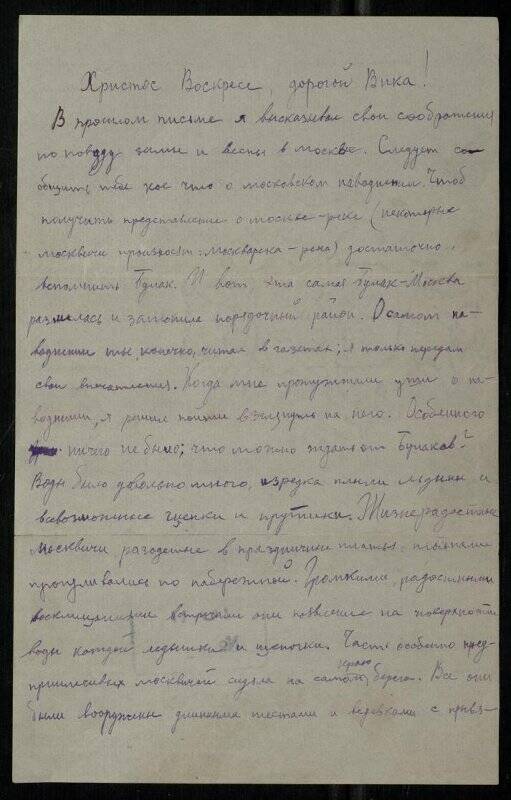 Христос Воскресе, дорогой Вика!
В прошлом письме я высказывал свои соображения
по поводу зимы и весны в Москве. Следует со-
общить тебе кое что о московском наводнении. Чтоб
получить представление о Москве-реке (некоторые
москвичи произносят: Москварека-река) достаточно
вспомнить Булак. И вот, эта самая Булак-Москва
разлилась и затопила порядочный район. О самом на-
воднении ты, конечно, читал в газетах; я только передам
свои впечатления. Когда мне прожужжали уши о на-
воднении, я решил пойти взглянуть на него. Особенного
ничего не было; что можно ждать от Булаков?
Воды было довольно много, изредка плыли льдины и
всевозможные щепки и прутики. Жизнерадостные
москвичи разодетые в праздничные платья, толпами
прогуливались по набережной. Громкими, радостными
восклицаниями встречали они появление на поверхности
воды каждой льдышки и щепочки. Часть особенно пред-
приимчивых москвичей сидела на самом краю берега. Все они
были вооружены длинными шестами и веревками с привя-